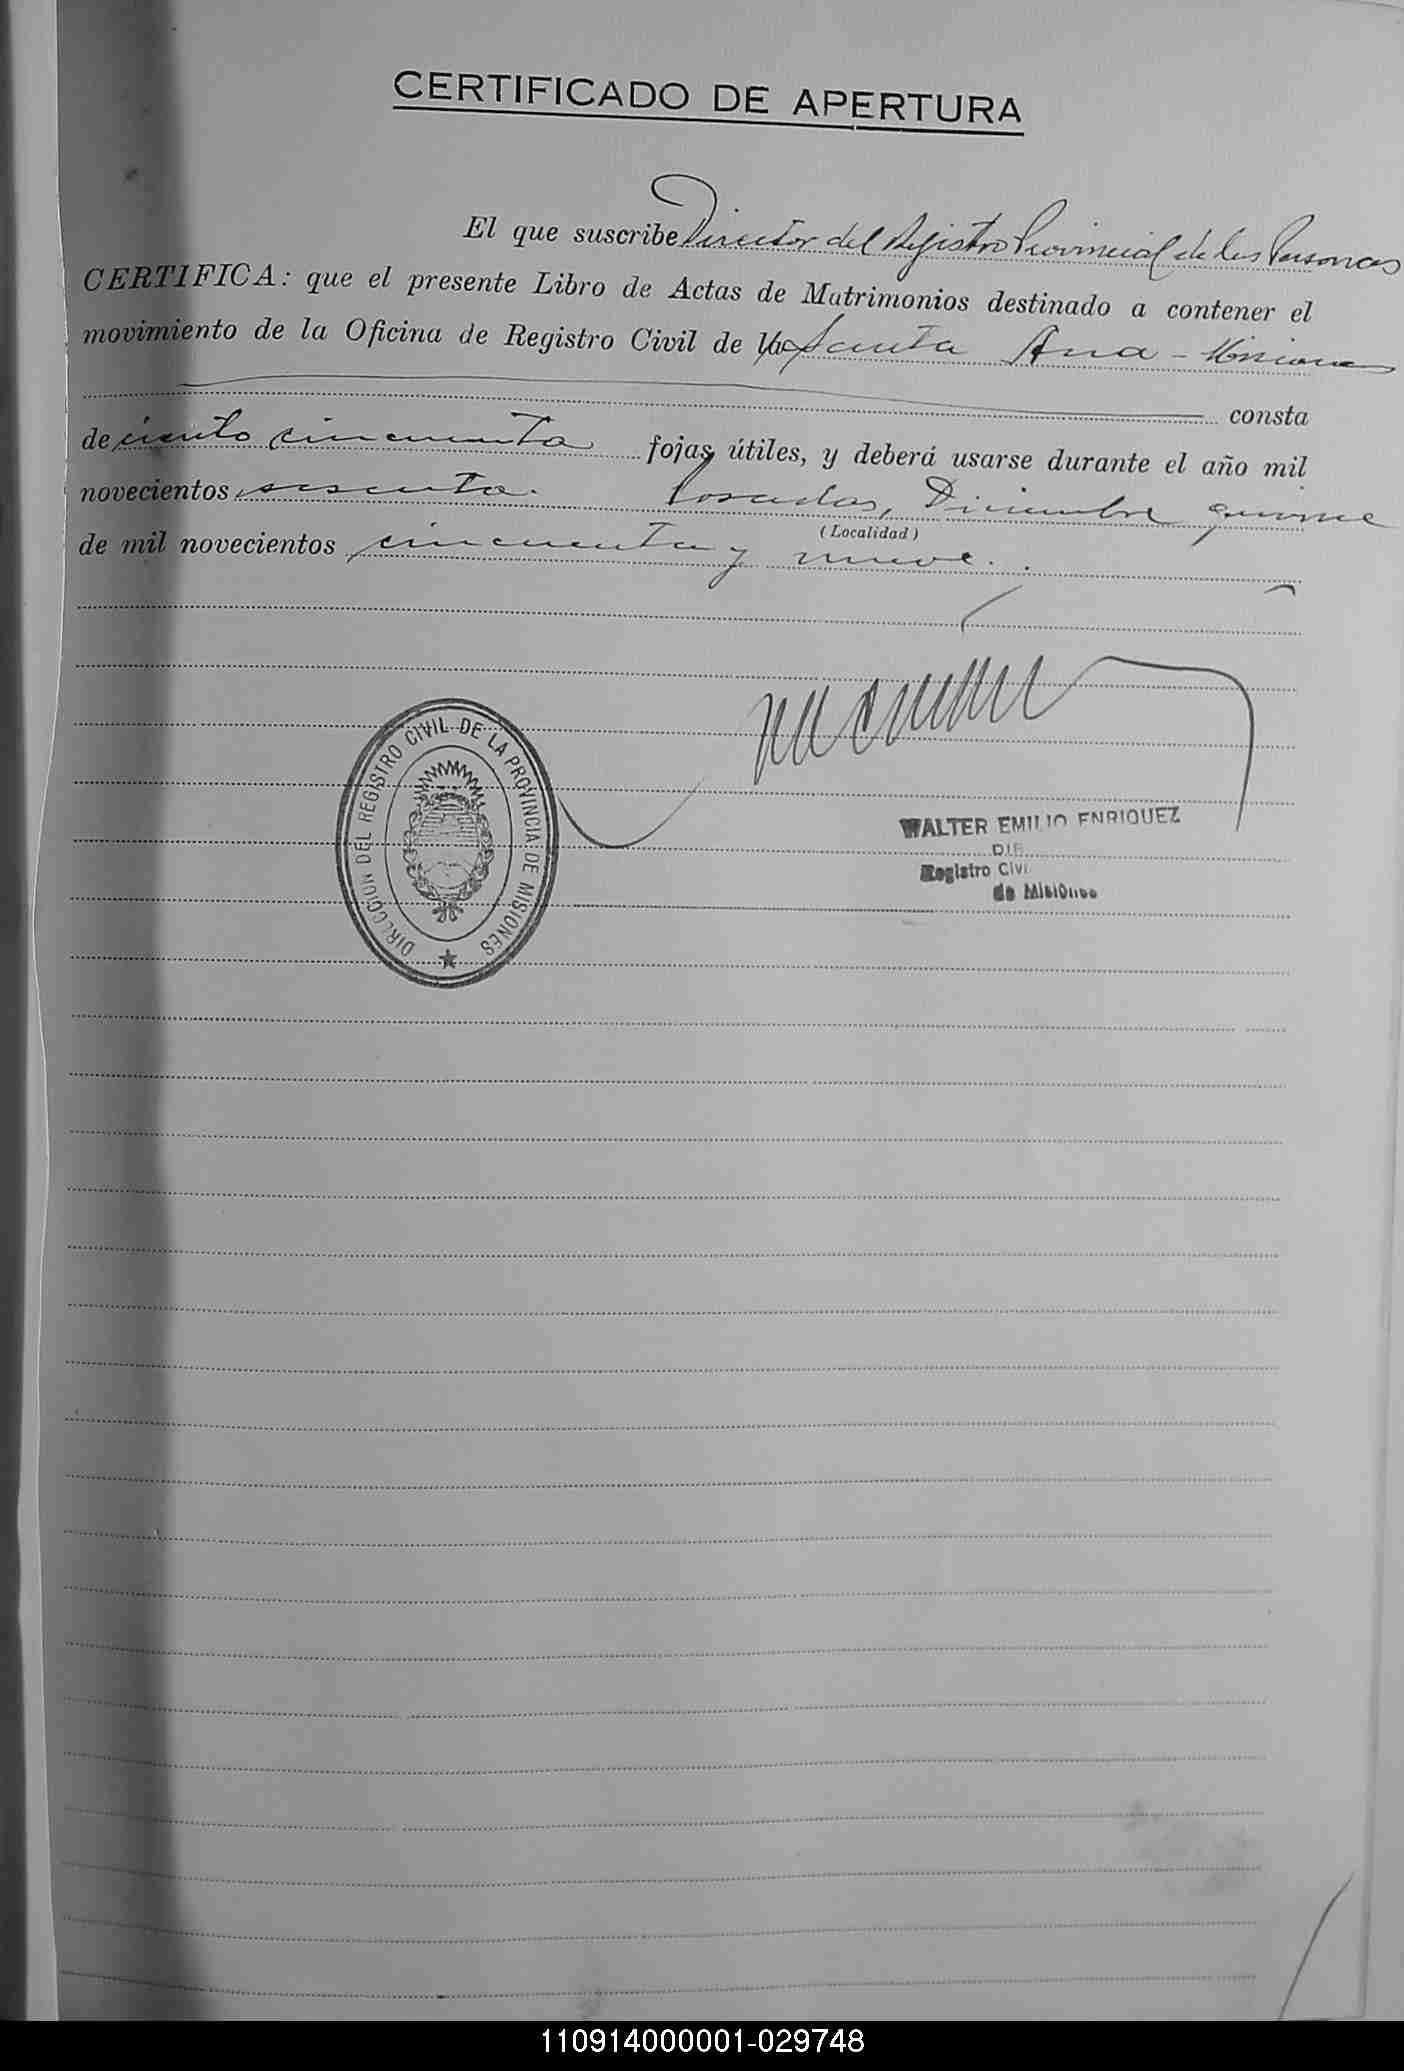 CERTIFICADO DE APERTURA
El que suscribe Director del Registro Provincial de las Personas
CERTIFICA: que el presente Libro de Actas de Matrimonios destinado a contener el
movimiento de la Oficina de Registro Civil de Santa Ana - Misiones
consta
de ciento cincuenta fojas útiles, y deberá usarse durante el año mil
novecientos sesenta. Posadas, Diciembre quince
(Localidad)
de mil novecientos cincuenta y nueve.
DIRECCION DEL REGISTRO CIVIL DE LA PROVINCIA DE MISIONES
WALTER EMILIO ENRIQUEZ
DIR
Registro Civi
de Misiones
110914000001-029748